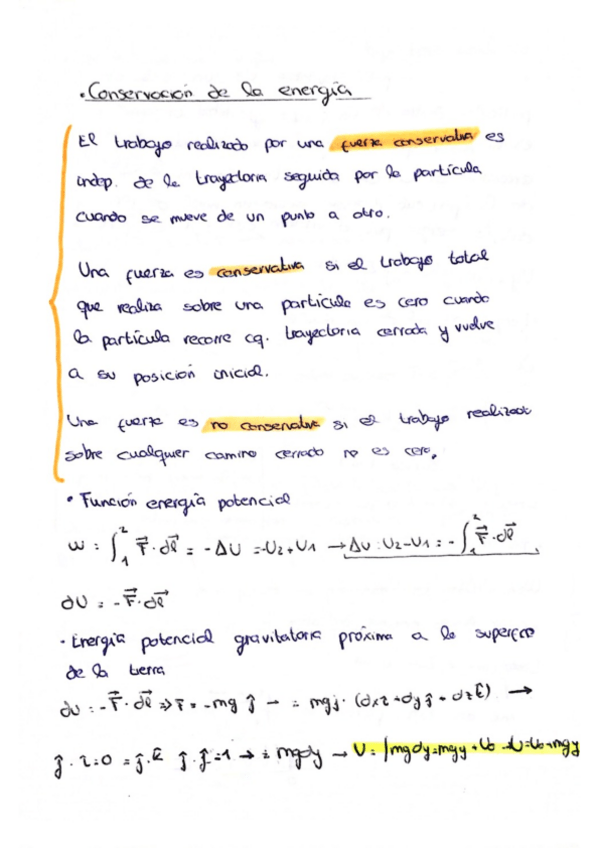 • Conservación de la energía
El trabajo realizado por una fuerza conservativa es
indep. de la trayectoria seguida por la partícula
cuando se mueve de un punto a otro.
Una fuerza es conservativa si el trabajo total
que realiza sobre una partícula es cero cuando
la partícula recorre cq. trayectoria cerrada y vuelve
a su posición inicial.
Una fuerza es no conservativa si el trabajo realizado
sobre cualquier camino cerrado no es cero.
• Función energía potencial
w = ∫₁² F⃗ · dl⃗ = -ΔU = -U₂ + U₁ → ΔU = U₂ - U₁ = - ∫₁² F⃗ · dl⃗
dU = -F⃗ · dl⃗
• Energía potencial gravitatoria próxima a la superficie
de la tierra
dU = -F⃗ · dl⃗ ⇒ F⃗ = -mg ĵ → = mgĵ · (dx î + dy ĵ + dz k̂) →
ĵ · î = 0 = ĵ · k̂ ĵ · ĵ = 1 → = mgdy → U = ∫mgdy = mgy + U₀ → U = U₀ + mgy